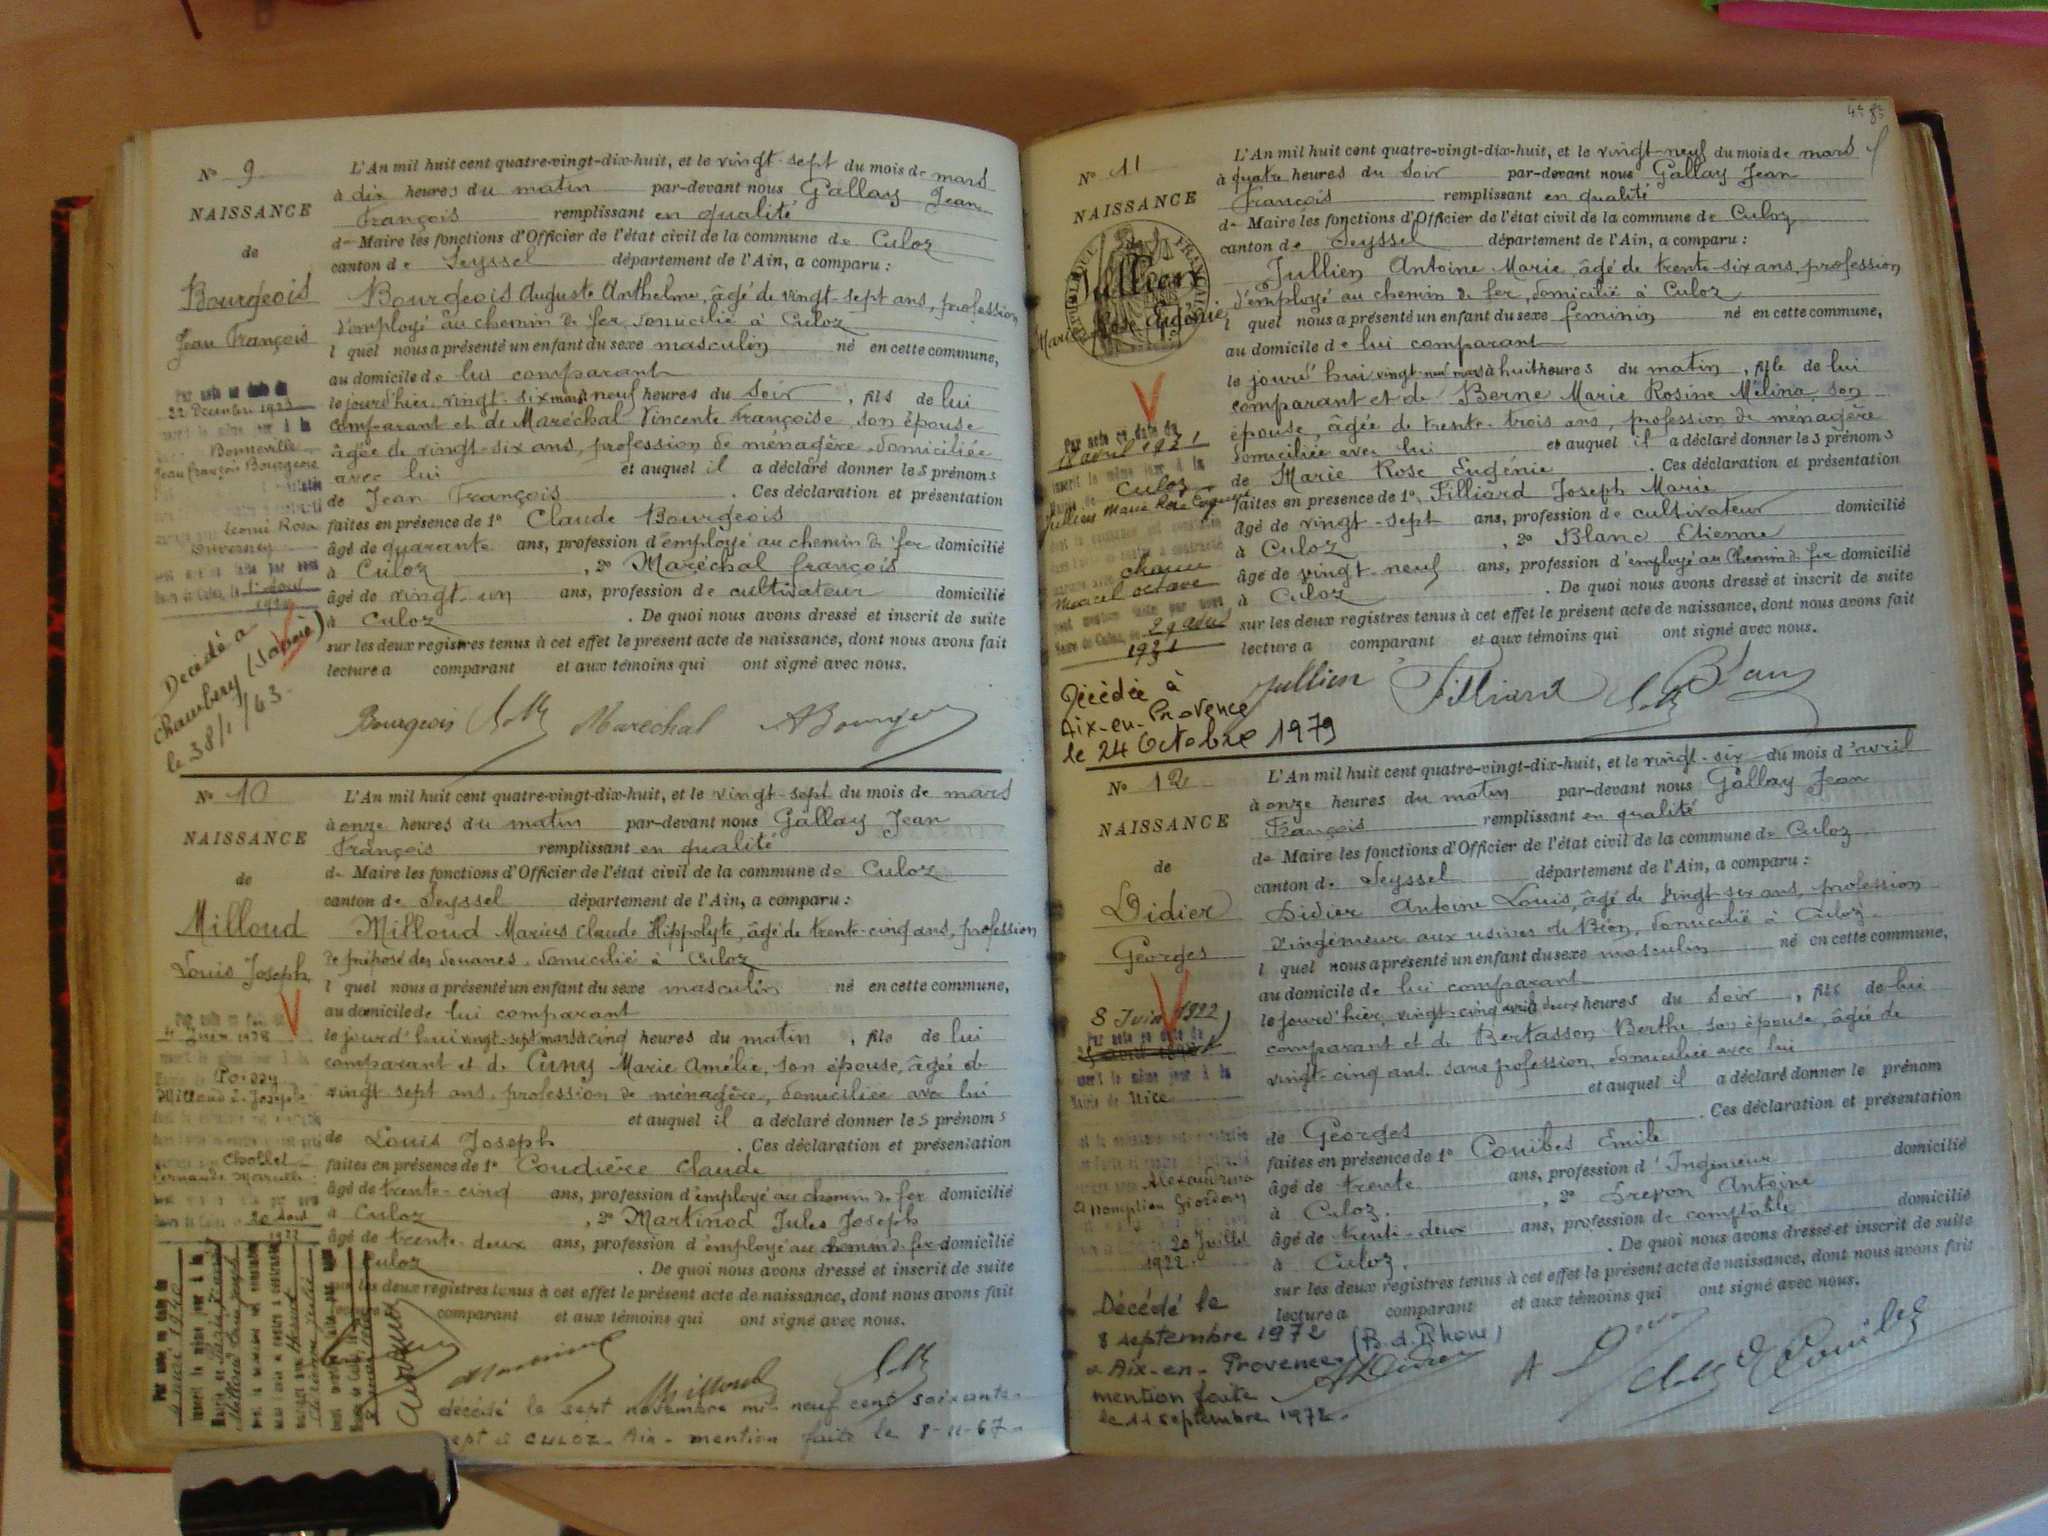 N° 9
NAISSANCE
de
Bourgeois
Jean François
Par acte en date du
22 Décembre 1923
inscrit le même jour à la
Bonneville
Jean François Bourgeois
Rosa
Duverney
Décédé à
Chambéry (Savoie)
L'An mil huit cent quatre-vingt-dix-huit, et le vingt-sept du mois de mars
à dix heures du matin par-devant nous Gallay Jean
François remplissant en qualité
de Maire les fonctions d'Officier de l'état civil de la commune de Culoz
canton de Seyssel département de l'Ain, a comparu :
Bourgeois Auguste Anthelme, âgé de vingt-sept ans, profession
d'employé au chemin de fer, domicilié à Culoz
lequel nous a présenté un enfant du sexe masculin né en cette commune,
au domicile de lui comparant
le jourd'hier vingt-six mars à neuf heures du soir, fils de lui
comparant et de Maréchal Vincente Françoise, son épouse
âgée de vingt-six ans, profession de ménagère, domiciliée
avec lui et auquel il a déclaré donner les prénoms
de Jean François. Ces déclaration et présentation
faites en présence de 1° Claude Bourgeois
âgé de quarante ans, profession d'employé au chemin de fer domicilié
à Culoz, 2° Maréchal françois
âgé de vingt-un ans, profession de cultivateur domicilié
à Culoz. De quoi nous avons dressé et inscrit de suite
sur les deux registres tenus à cet effet le présent acte de naissance, dont nous avons fait
lecture a comparant et aux témoins qui ont signé avec nous.
Bourgeois Maréchal ABourgeois
N° 10
NAISSANCE
de
Milloud
Louis Joseph
Poissy
Milloud L. Joseph
Chollet
20 Août
L'An mil huit cent quatre-vingt-dix-huit, et le vingt-sept du mois de mars
à onze heures du matin par-devant nous Gallay Jean
François remplissant en qualité
de Maire les fonctions d'Officier de l'état civil de la commune de Culoz
canton de Seyssel département de l'Ain, a comparu :
Milloud Marius Claude Hippolyte, âgé de trente-cinq ans, profession
de préposé des douanes, domicilié à Culoz
lequel nous a présenté un enfant du sexe masculin né en cette commune,
au domicile de lui comparant
le jourd'hui vingt-sept mars à cinq heures du matin, fils de lui
comparant et de Cuny Marie Amélie, son épouse, âgée de
vingt sept ans, profession de ménagère, domiciliée avec lui
et auquel il a déclaré donner les prénoms
de Louis Joseph. Ces déclaration et présentation
faites en présence de 1° Coudière Claude
âgé de trente-cinq ans, profession d'employé au chemin de fer domicilié
à Culoz, 2° Martinod Jules Joseph
âgé de trente-deux ans, profession d'employé au chemin de fer domicilié
Culoz. De quoi nous avons dressé et inscrit de suite
sur les deux registres tenus à cet effet le présent acte de naissance, dont nous avons fait
comparant et aux témoins qui ont signé avec nous.
Milloud
décédé le sept novembre mil neuf cent soixante-
sept à CULOZ - Ain - mention faite le 8-11-67
N° 11
NAISSANCE
de
Jullien
Marie Rose Eugénie
Par acte en date du
18 avril 1921
inscrit le même jour à la
Mairie de Culoz
Jullien Marie Rose Eugénie
Marcel Octave
1921
Décédée à
Aix-en-Provence
le 24 Octobre 1979
L'An mil huit cent quatre-vingt-dix-huit, et le vingt-neuf du mois de mars
à quatre heures du soir par-devant nous Gallay Jean
François remplissant en qualité
de Maire les fonctions d'Officier de l'état civil de la commune de Culoz
canton de Seyssel département de l'Ain, a comparu :
Jullien Antoine Marie, âgé de trente-six ans, profession
d'employé au chemin de fer, domicilié à Culoz
lequel nous a présenté un enfant du sexe féminin né en cette commune,
au domicile de lui comparant
le jourd'hui vingt-neuf mars à huit heures du matin, fille de lui
comparant et de Berne Marie Rosine Mélina, son
épouse, âgée de trente-trois ans, profession de ménagère
domiciliée avec lui et auquel il a déclaré donner les prénoms
de Marie Rose Eugénie. Ces déclaration et présentation
faites en présence de 1° Filliard Joseph Marie
âgé de vingt-sept ans, profession de cultivateur domicilié
à Culoz, 2° Blanc Etienne
âgé de vingt-neuf ans, profession d'employé au Chemin de fer domicilié
à Culoz. De quoi nous avons dressé et inscrit de suite
sur les deux registres tenus à cet effet le présent acte de naissance, dont nous avons fait
lecture a comparant et aux témoins qui ont signé avec nous.
Jullien Filliard Blanc
N° 12
NAISSANCE
de
Didier
Georges
8 Juin 1922
Par acte en date du
inscrit le même jour à la
Mairie de Nice
Alexandrine
Giordan
20 Juillet
1922
Décédé le
8 septembre 1972
à Aix-en-Provence (B.d.Rhone)
mention faite
le 11 septembre 1972.
L'An mil huit cent quatre-vingt-dix-huit, et le vingt-six du mois d'avril
à onze heures du matin par-devant nous Gallay Jean
François remplissant en qualité
de Maire les fonctions d'Officier de l'état civil de la commune de Culoz
canton de Seyssel département de l'Ain, a comparu :
Didier Antoine Louis, âgé de vingt-six ans, profession
d'ingénieur aux usines de Béon, domicilié à Culoz
lequel nous a présenté un enfant du sexe masculin né en cette commune,
au domicile de lui comparant
le jourd'hier, vingt-cinq avril à deux heures du soir, fils de lui
comparant et de Bertasson Berthe son épouse, âgée de
vingt-cinq ans, sans profession, domiciliée avec lui
et auquel il a déclaré donner le prénom
de Georges. Ces déclaration et présentation
faites en présence de 1° Combes Emile
âgé de trente ans, profession d'Ingénieur domicilié
à Culoz, 2° Drevon Antoine
âgé de trente-deux ans, profession de comptable domicilié
à Culoz. De quoi nous avons dressé et inscrit de suite
sur les deux registres tenus à cet effet le présent acte de naissance, dont nous avons fait
lecture a comparant et aux témoins qui ont signé avec nous.